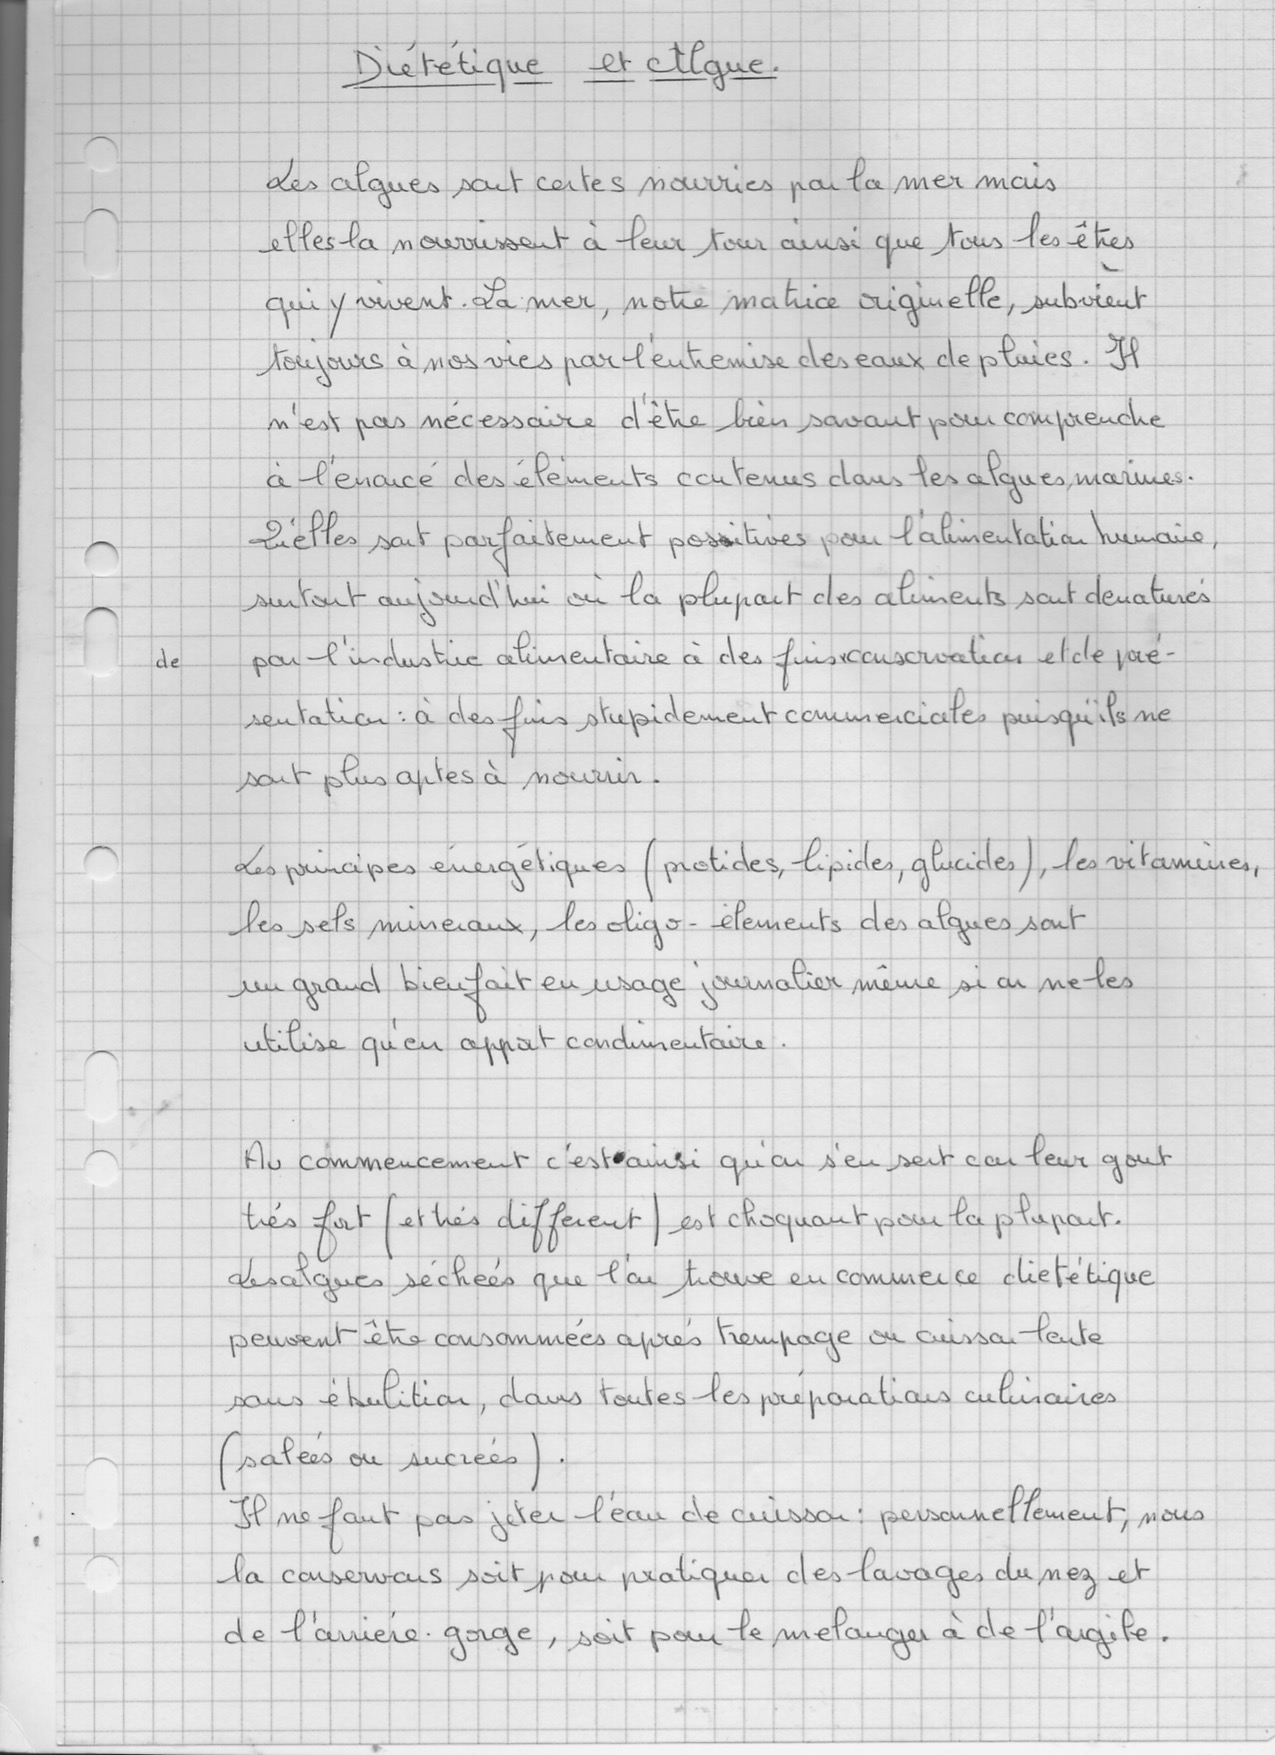 Diététique et Algue.
Les algues sont certes nourries par la mer mais
elles la nourrissent à leur tour ainsi que tous les êtres
qui y vivent. La mer, notre matrice originelle, subvient
toujours à nos vies par l'entremise des eaux de pluies. Il
n'est pas nécessaire d'être bien savant pour comprendre
à l'énoncé des éléments contenus dans les algues marines.
Qu'elles sont parfaitement positives pour l'alimentation humaine,
surtout aujourd'hui où la plupart des aliments sont denaturés
de par l'industrie alimentaire à des fins x conservation et de pré-
sentation : à des fins stupidement commerciales puisqu'ils ne
sont plus aptes à nourrir.
Les principes énergétiques (protides, lipides, glucides), les vitamines,
les sels mineraux, les oligo-élements des algues sont
un grand bienfait en usage journalier même si on ne les
utilise qu'en appat condimentaire.
Au commencement c'est ainsi qu'on s'en sert car leur gout
trés fort (et trés différent) est choquant pour la plupart.
Les algues séchées que l'on trouve en commerce dietétique
peuvent être consommées aprés trempage ou cuisson lente
sans ébulition, dans toutes les préparations culinaires
(salées ou sucrées).
Il ne faut pas jeter l'eau de cuisson : personnellement, nous
la conservons soit pour pratiquer des lavages du nez et
de l'arriére-gorge, soit pour le melanger à de l'argile.